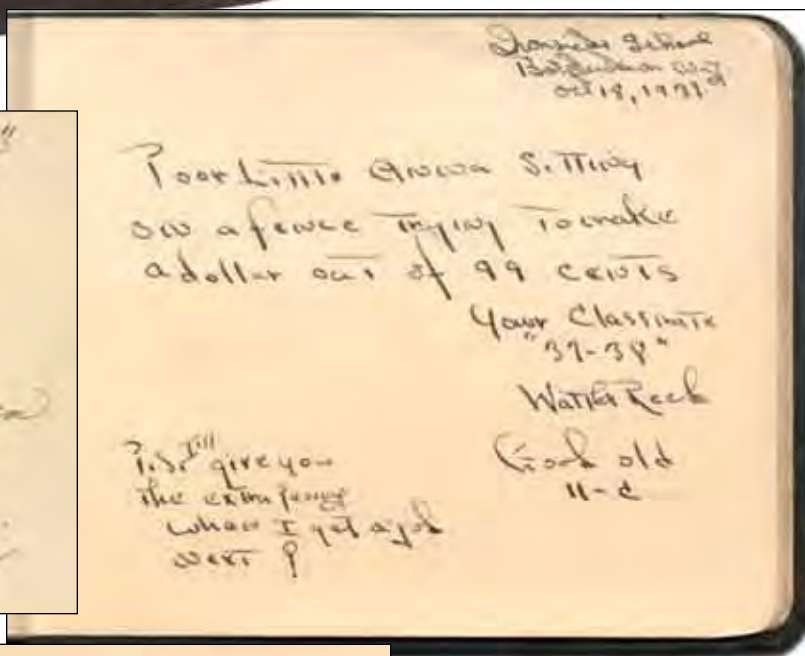 School
Oct 18, 1937
Poor Little Anna Sitting
on a fence Trying To make
a dollar out of 99 cents
Your Classmate
"37-38"
Walter
Good old
11-C
P.S. I'll give you
the extra penny
when I get a job
next